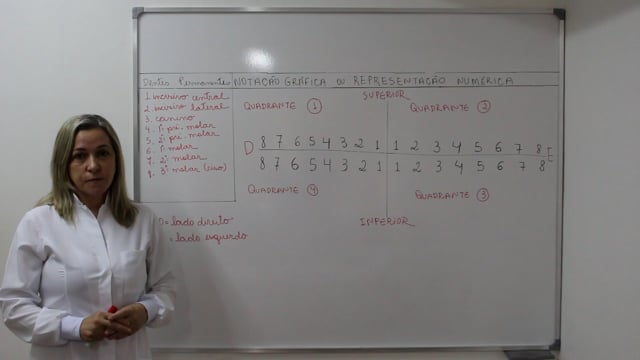 Dentes Permanentes NOTAÇÃO GRÁFICA OU REPRESENTAÇÃO NUMÉRICA
1 incisivo central
2 incisivo lateral
3. canino
4. 1º pré. molar
5. 2º pré. molar
6. 1º molar
7. 2º molar
8. 3º molar (siso)
SUPERIOR
QUADRANTE 1 QUADRANTE 2
D 8 7 6 5 4 3 2 1 1 2 3 4 5 6 7 8 E
8 7 6 5 4 3 2 1 1 2 3 4 5 6 7 8
QUADRANTE 4 QUADRANTE 3
INFERIOR
D = lado direito
= lado esquerdo